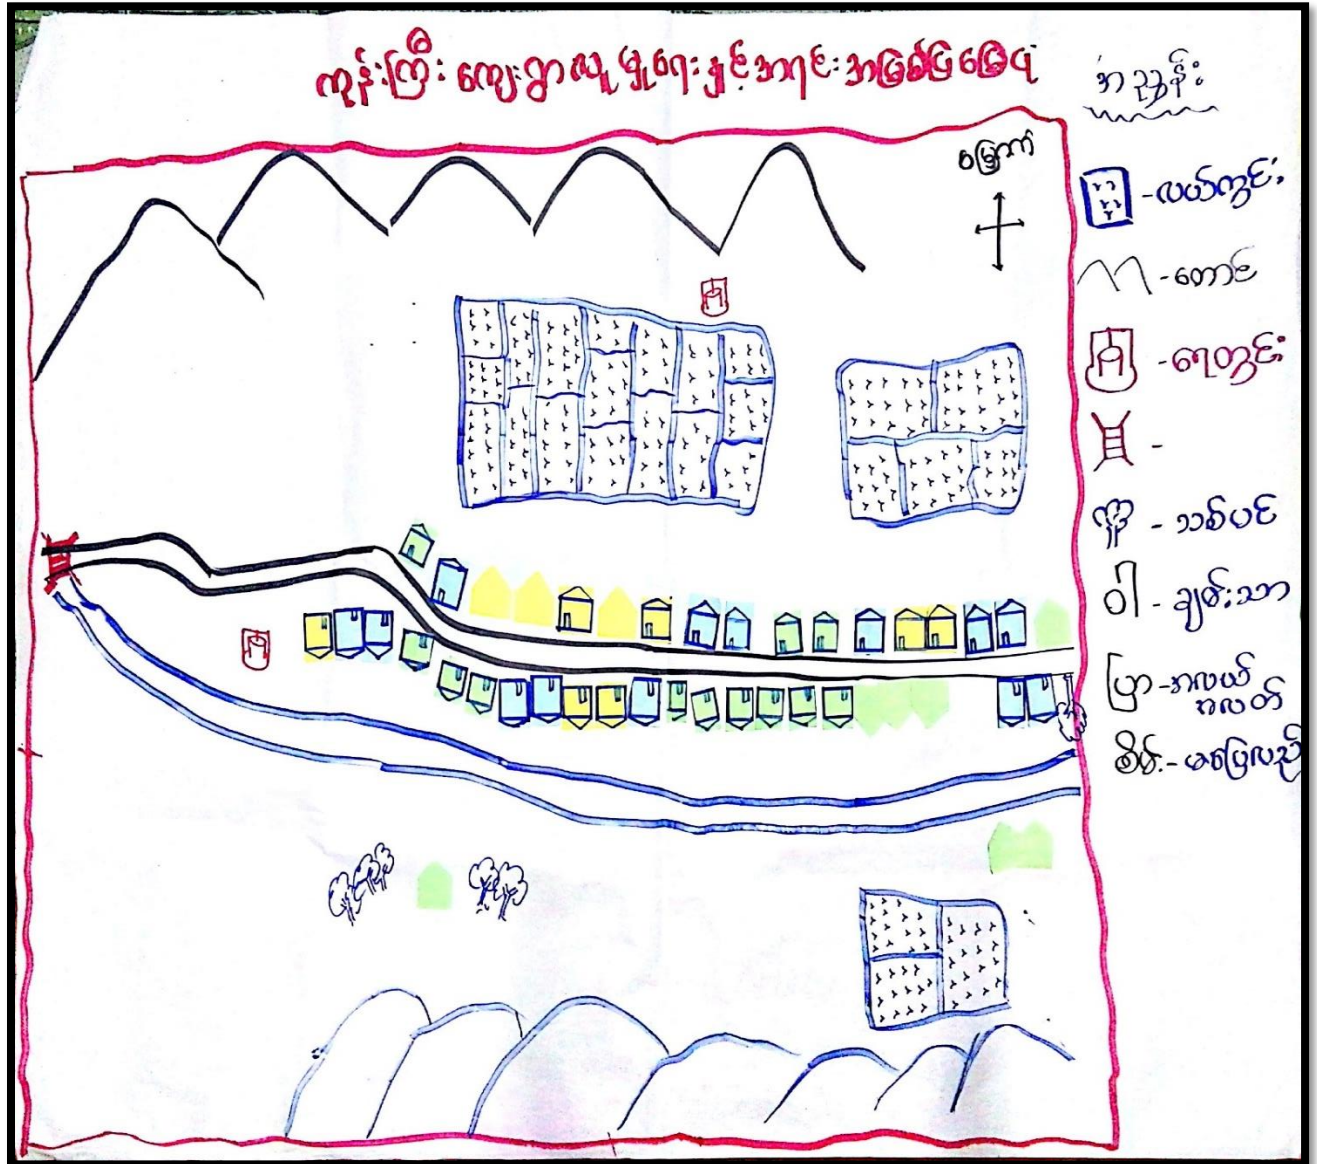 ကုန်းကြီး ကျေးရွာလူမှုရေးနှင့်အရင်းအမြစ်ပြမြေပုံ
အညွှန်း
မြောက်
-လယ်ကွင်း
-တောင်
-ရေတွင်း
-
- သစ်ပင်
ဝါ - ချမ်းသာ
ပြာ-အလယ်
အလတ်
စိမ်း-မပြေလည်